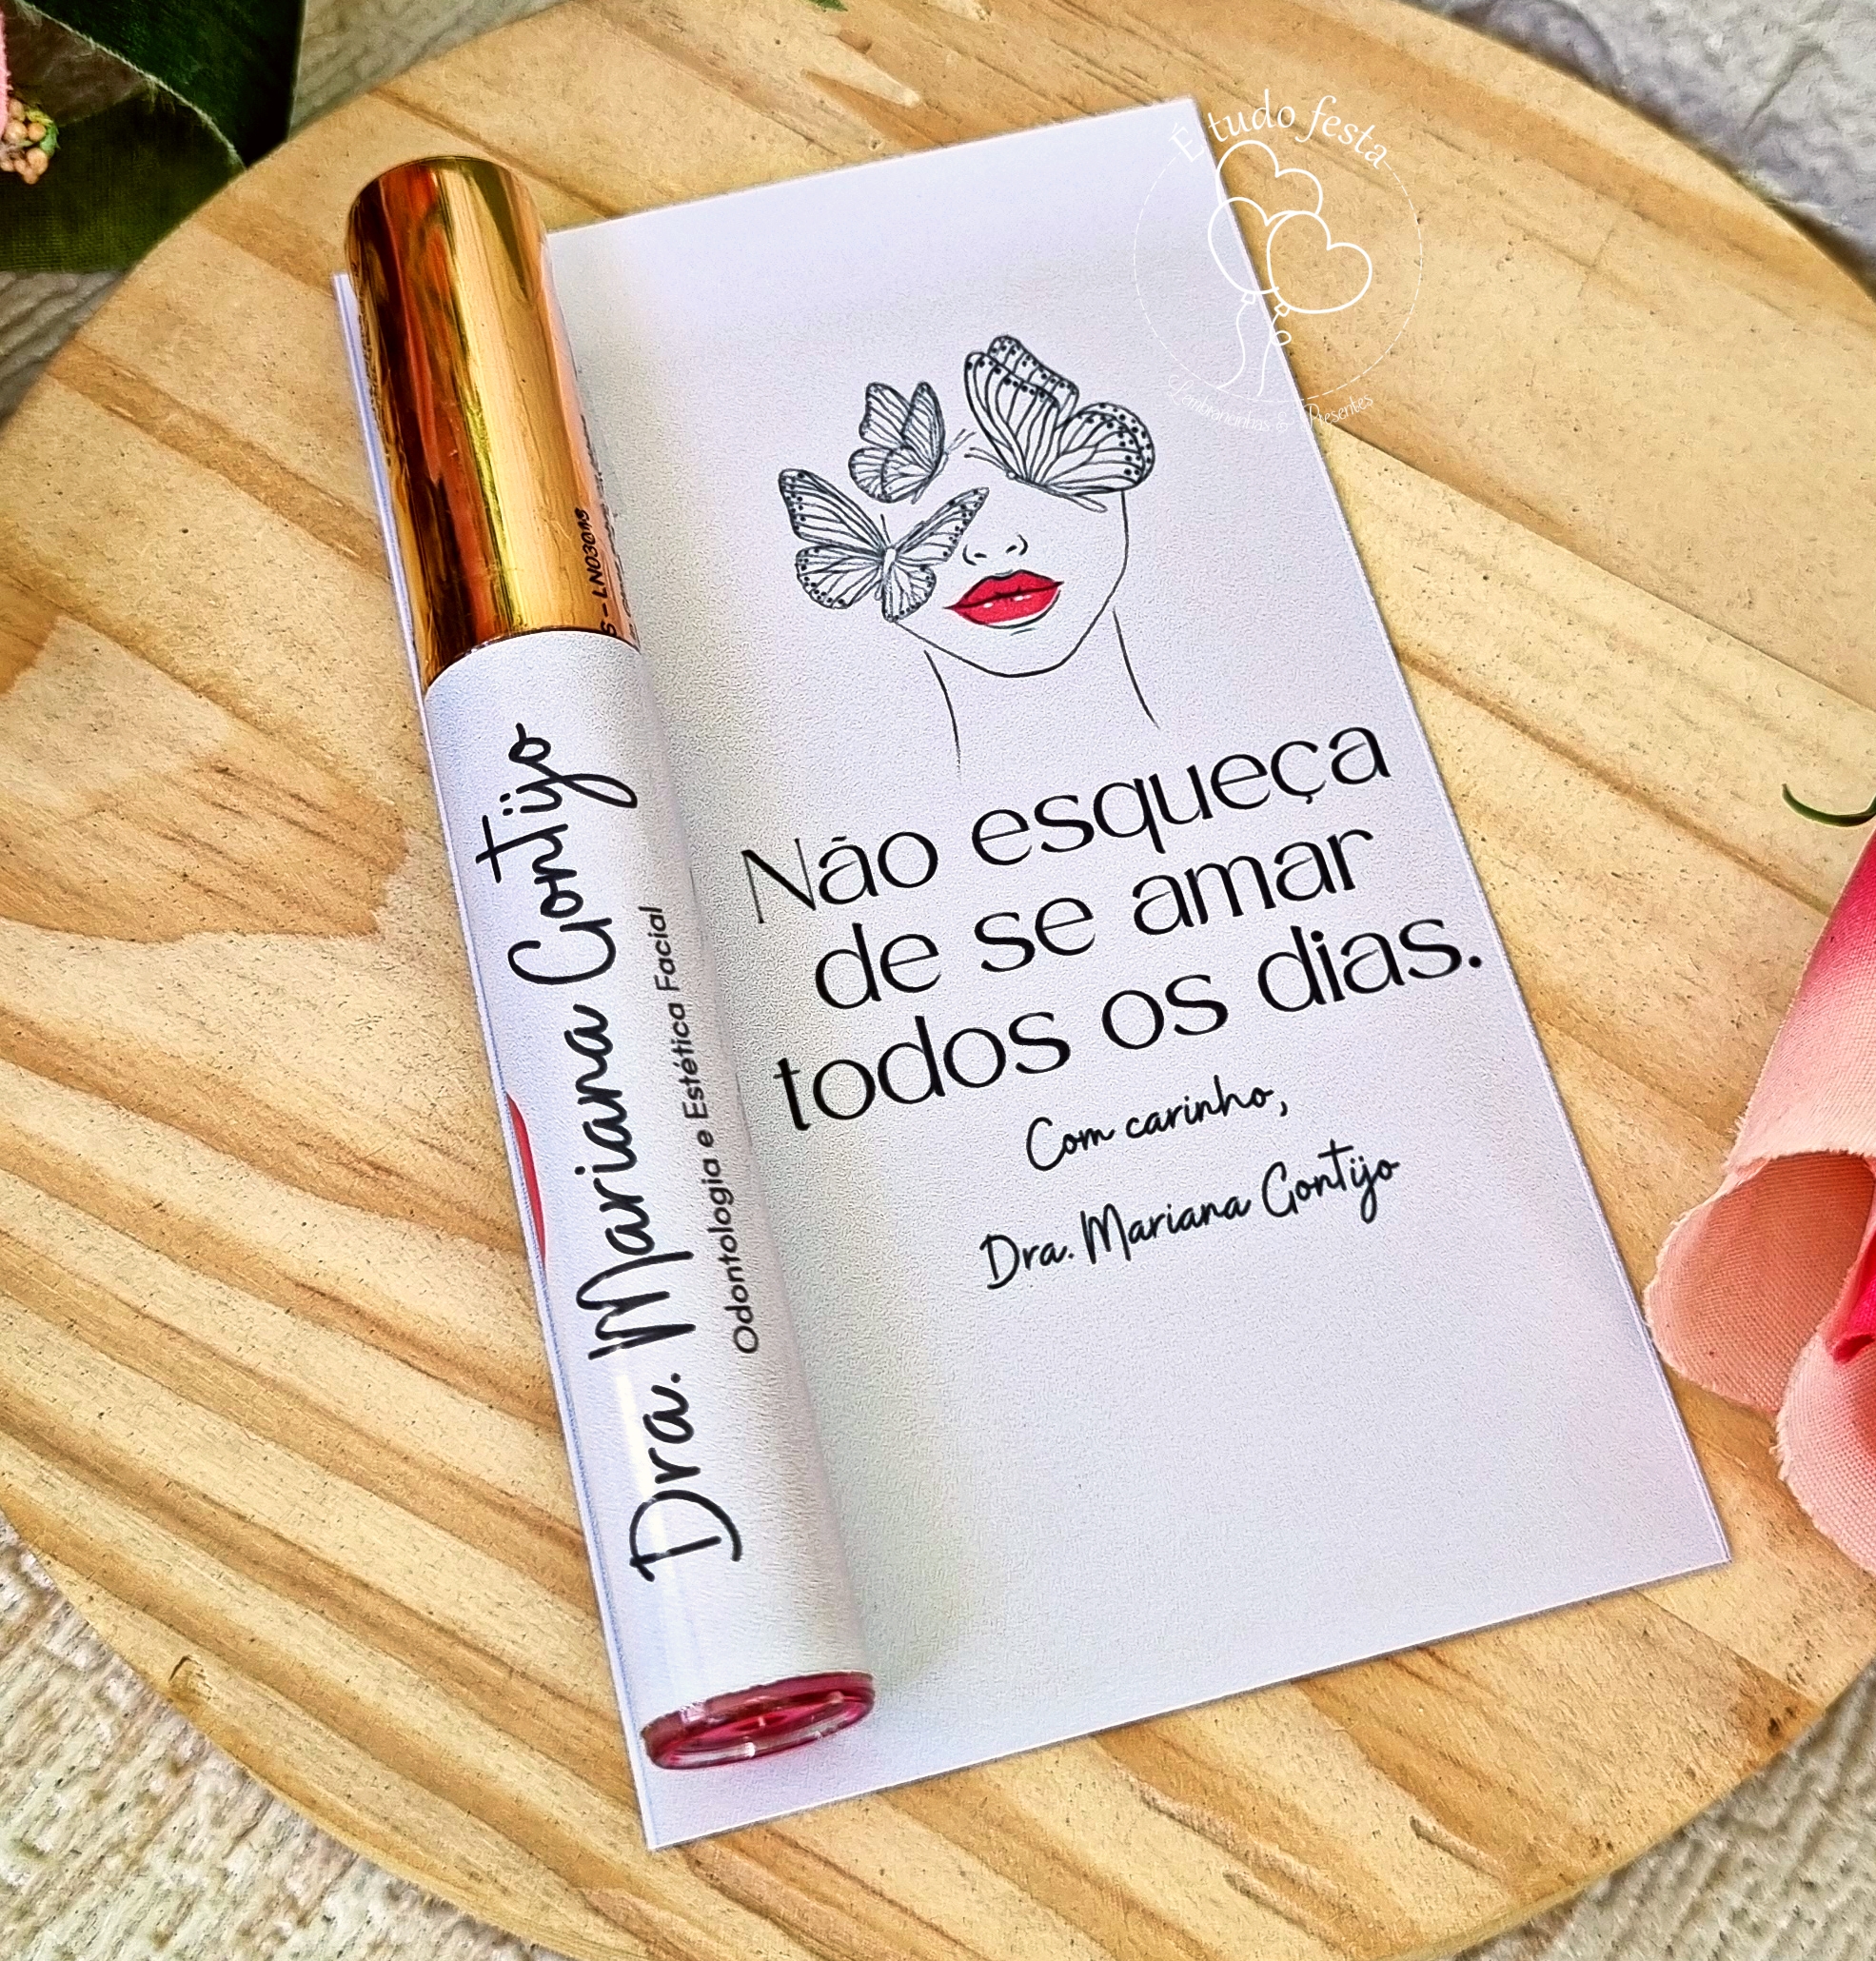 É tudo festa
Lembrancinhas & Presentes
Não esqueça
de se amar
todos os dias.
Com carinho,
Dra. Mariana Contijo
Dra. Mariana Contijo
Odontologia e Estética Facial